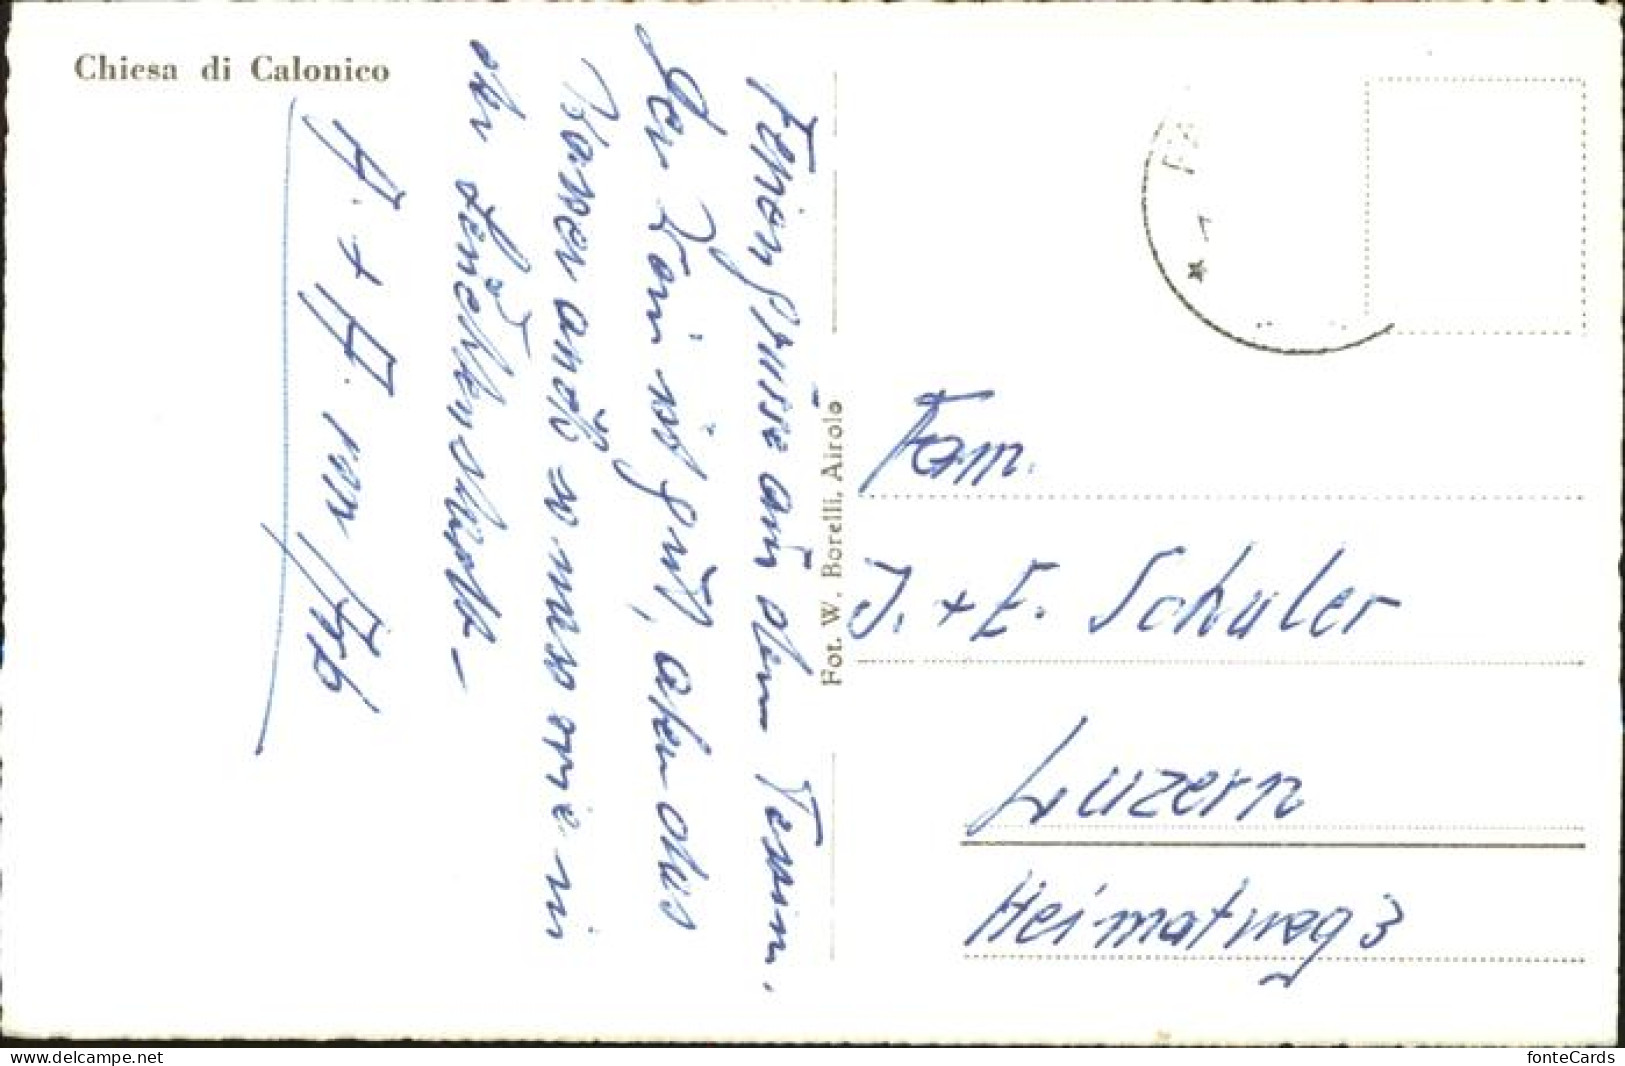 Chiesa di Calonico
Feriengrüsse aus dem Tessin.
Der Wein ist gut, aber das
Wasser auch so nass wie in
der Zentralschweiz
A. + A. von
Fot. W. Borelli, Airolo
Fam.
J. + E. Schuler
Luzern
Heimatweg 3
www.delcampe.net
fonteCards